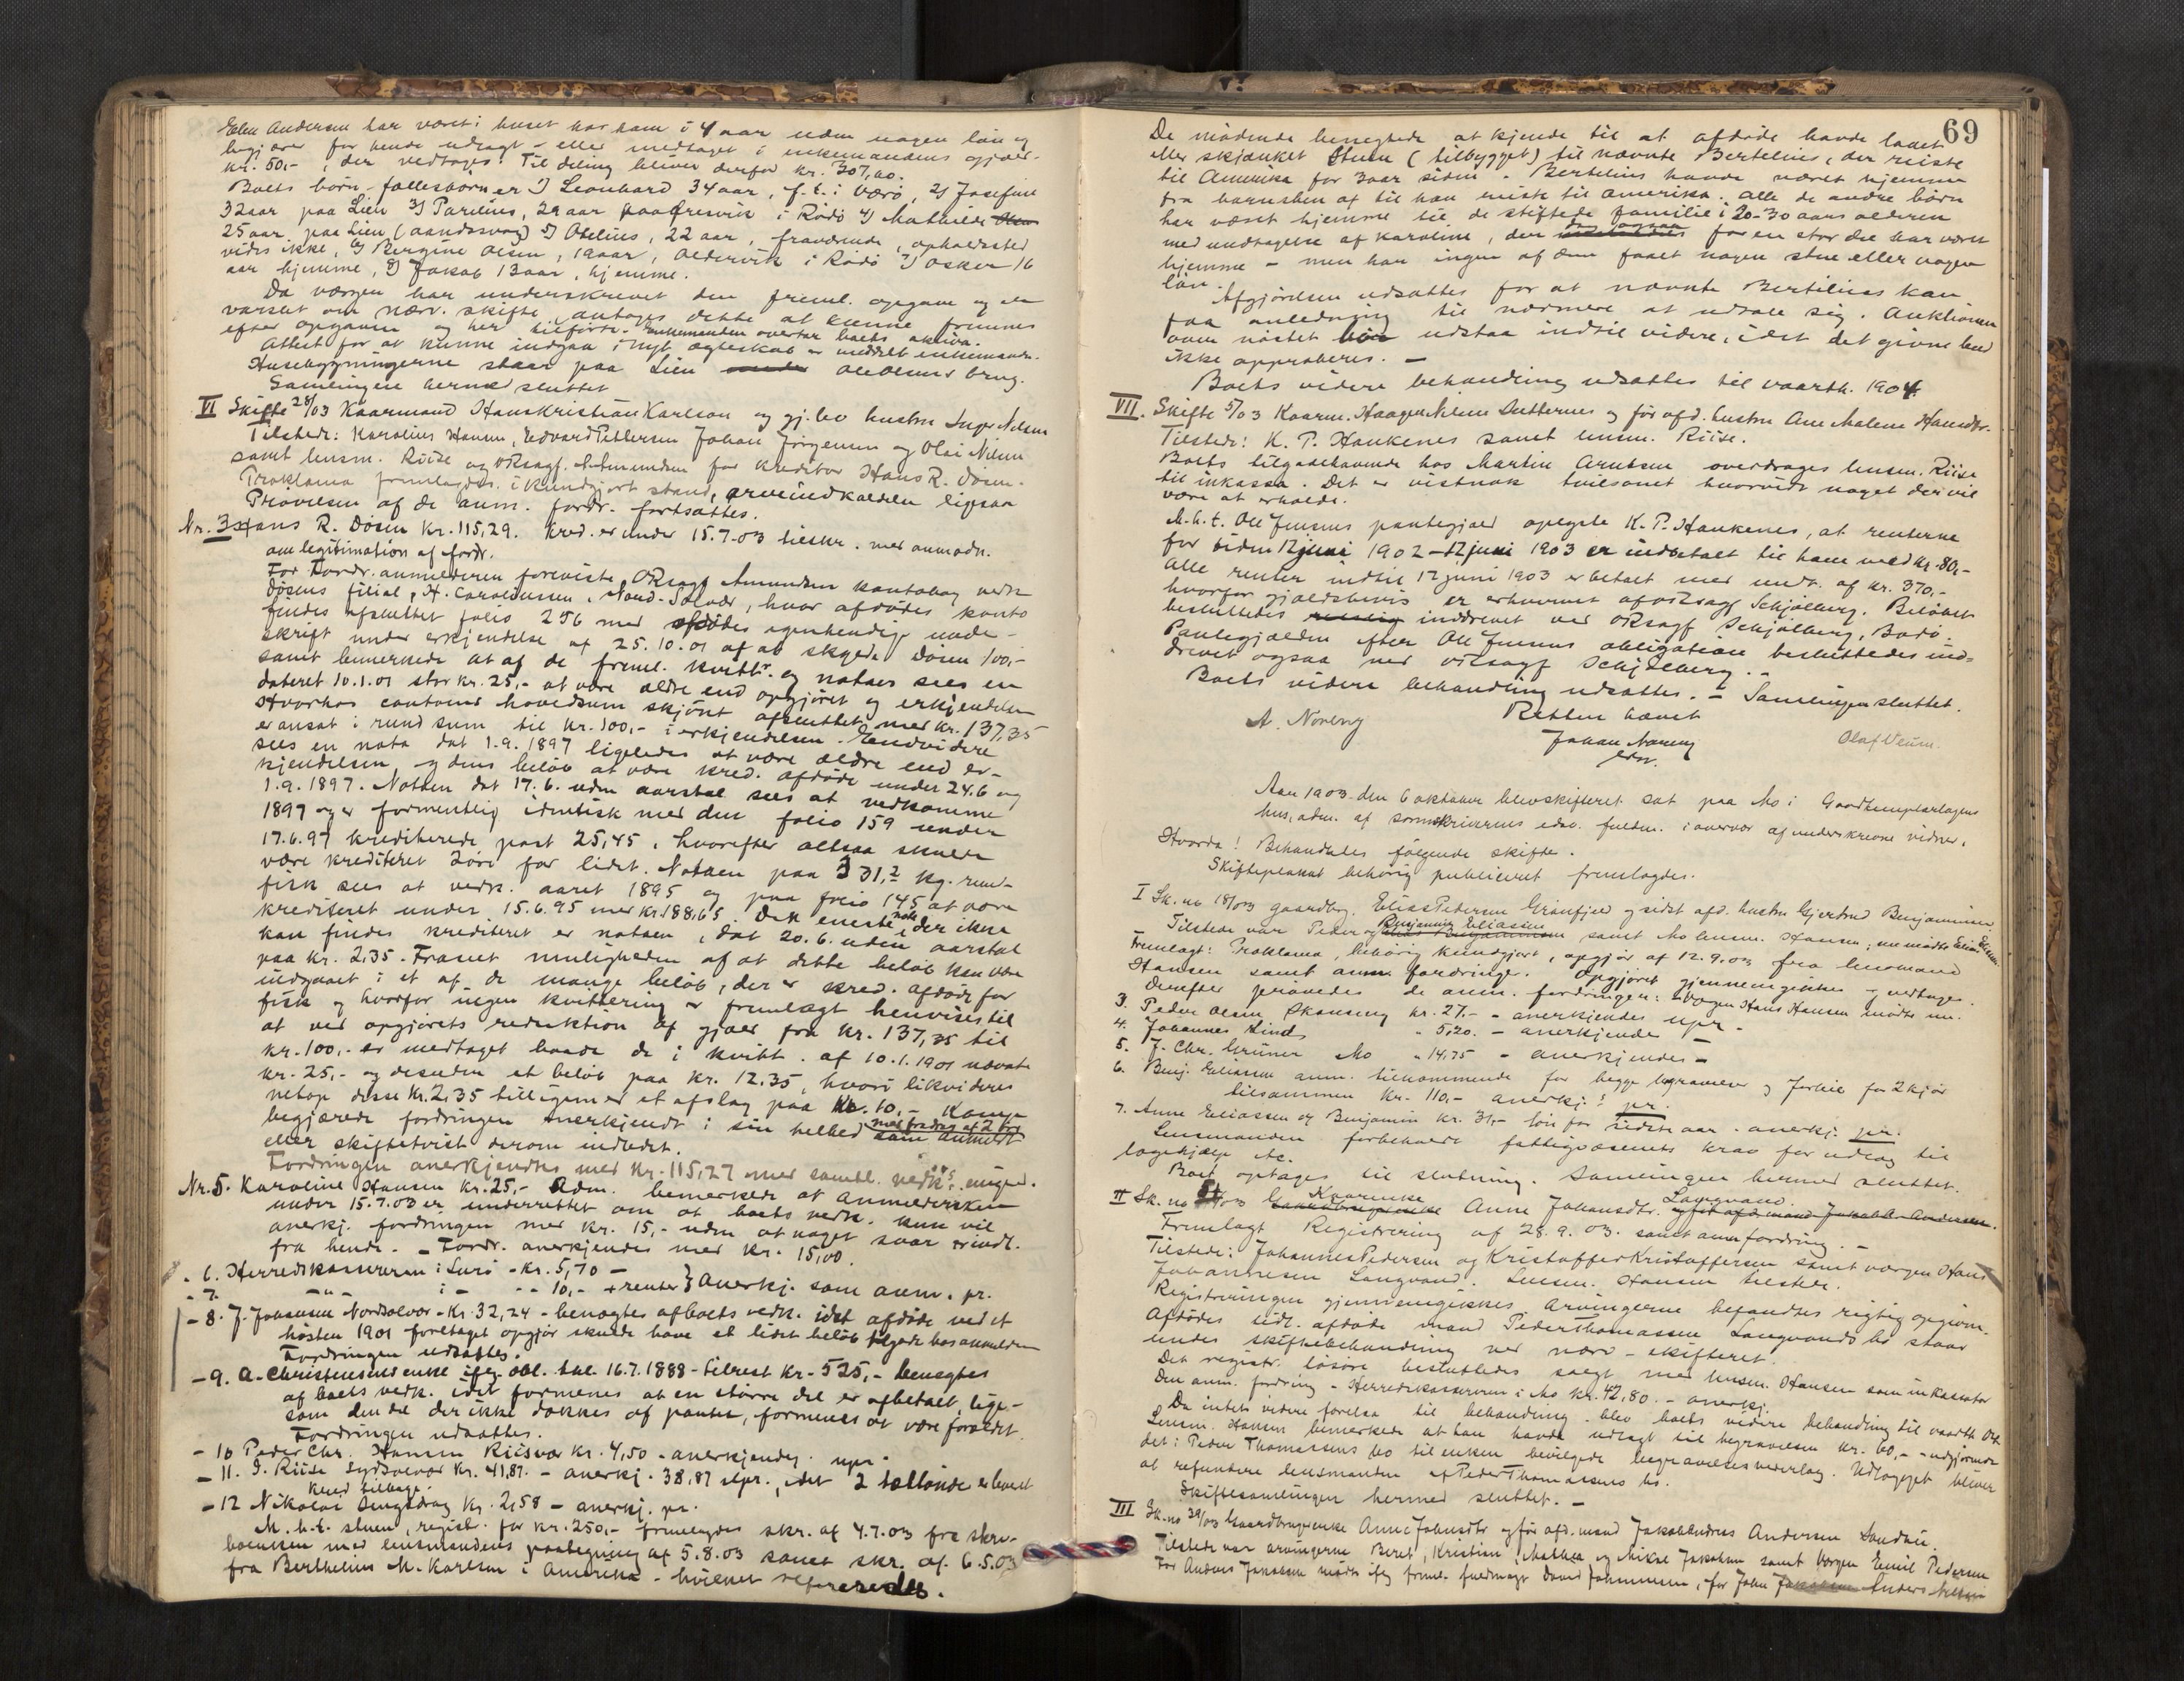 Elen Andersen har været i huset hos ham i 4 aar uden nogen løn og
begjærer for hende udlagt - eller medtaget i enkemandens gjæld -
kr. 50,- , der vedtages. Til deling bliver derfor kr. 307,60.
Boets børn - fællesbørn er 1) Leonhard 34 aar, f. t. i Værø, 2) Josefine
32 aar paa Lien 3) Parelius, 29 aar paa Gresvik i Rødø 4) Mathilde
25 aar paa Lien (aandssvag) 5) Otelius, 22 aar, fraværende, opholdssted
vides ikke, 6) Bergine Olsen, 19 aar, Oldervik i Rødø 7) Oskar 16
aar hjemme, 8) Jakob 13 aar, hjemme.
Da værgen har underskrevet den freml. opgave og er
varslet om nærv. skifte, antages dette at kunne fremmes
efter opgaven og her tilførte. Enkemanden overtar boets aktiva.
Attest for at kunne indgaa i nyt ægteskab er meddelt enkemanden.
Husebygningerne staar paa Lien Ole Olsens brug.
Samlingen hermed sluttet
VI Skifte 28/03 Kaarmand Hans Kristian Karlsen og gj. lev hustru Inger Nilsen
Tilstede: Karolius Hansen, Edvard Pettersen Johan Jörgensen og Olai Nilsen
samt lensm. Riise og Orsagf. Amundsen for kreditor Hans R. Døsen.
Proklama fremlagdes i kundgjort stand, arveindkaldelse ligesaa
Prøvelsen af de anm. fordr. fortsattes.
Nr. 3 Hans R. Døsen kr. 115,29. Kred. er under 15.7.03 tilskr. med anmodn.
om legitimation af fordr.
For Fordr. anmelderen foreviste ORsagf Amundsen kontobog vedk
Døsens filial, H. Caroliussen, Nord-Solvær, hvor afdødes konto
findes afsluttet folio 256 med afdødes egenhendige unde-
skrift under erkjendelse af 25.10.01 af at skylde Døsen 100,-
samt bemerkede at af de freml. kvittr. og notaer sees en
dateret 10.1.01 stor kr. 25,- at være ældre end opgjøret og erkjendelsen
Hvorhos contoens hovedsum skjønt afsluttet med kr. 137,35
er ansat i rund sum til kr. 100,- i erkjendelsen. Endvidere
sees en nota dat 1.9.1897 ligeledes at være ældre end er-
kjendelsen, og dens beløb at være kred. afdøde under 24.6 og
1.9.1897. Notaen dat 17.6. uden aarstal sees at vedkomme
1897 og er formentlig identisk med den folio 159 under
17.6.97 krediterede post 25,45, hvorefter altsaa skulde
være krediteret 2 øre for lidet. Notaen paa 331,2 kg. rund-
fisk sees at vedk. aaret 1895 og paa folio 145 at være
krediteret under 15.6.95 med kr. 188,65. Den eneste nota der ikke
kan findes krediteret er notaen, dat 20.6. uden aarstal
paa kr. 2,35. Fraset muligheden af at dette beløb kan være
indgaaet i et af de mange beløb, der er kred. afdøde for
fisk og hvorfor ingen kvittering er fremlagt henvises til
at ved opgjørets reduktion af gjæld fra kr. 137,35 til
kr. 100,- er medtaget baade de i kvitt. af 10.1.1901 nævnte
kr. 25,- og desuden et beløb paa kr. 12.35, hvori likvideres
netop disse kr. 2,35 tilligemed et afslag paa kr. 10,-
begjærede fordringen anerkjendt i sin helhed med fradrag af 2 øre som anmeldt
eller skiftetvist derom indledet.
Fordringen anerkjendtes med kr. 115,27 med samtl. vedk. enighed.
Nr. 5. Karoline Hansen kr. 25,- Adm. bemerkede at Anmeldersken
under 15.7.03 er underrettet om at boets vedk. kun vil
anerkj. fordringen med kr. 15,- uden at noget svar er indl.
fra hende. - Fordr. anerkjendes med kr. 15,00.
- 6. Herredskassereren i Lurø - kr. 5,70 -
- 7. -"- i - " - 10,- + renter } Anerkj. som anm. pr.
- 8. J. Johansen Nordsolvær - kr. 32,24 - benægtes af boets vedk. idet afdøde ved et
høsten 1901 foretaget opgjør skulde have et lidet beløb tilgode hos anmelderen
Fordringen udsattes.
- 9. A. Christensens enke iflg. obl. tul. 16.7.1888 - tilrest kr. 525,- benægtes
af boets vedk. idet formenes at en større del er afbetalt, lige-
som den del der ikke dækkes af pantet, formenes at være forældet.
Fordringen udsattes.
- 10 Peder Chr. Hansen Riisvær kr. 4,50 - anerkjendes upr.
- 11. I. Riise Sydsolvær kr. 41,87. - anerkj. 38,87 upr., idet 2 sættønde er leveret
kred tilbage.
- 12 Nikolai Sengsdrag kr. 2,58 - anerkj. pr.
M. h. t. stuen, registr. for kr. 250,- fremlagdes skr. af 4.7.03 fra skra-
boensen med lensmandens paategning af 5.8.03 samt skr. af 6.5.03
fra Berthelius M. Karlsen i Amerika - hvilket refereredes.
69
De mødende benegtede at kjende til at afdøde havde lovet
eller skjænket Stuen (tilbygget) til nævnte Bertelius, der reiste
til Amerika for 3 aar siden. Bertelius havde været hjemme
fra barnsben af til han reiste til Amerika. Alle de andre børn
har været hjemme til de stiftede familie i 20-30 aars alderen
med undtagelse af Karoline, der for en stor del har været
hjemme - men har ingen af dem faaet nogen stue eller nogen
løn.
Afgjørelsen udsattes for at nævnte Bertelius kan
faa anledning til nærmere at udtale sig. Auktionen
over nøstet bør udstaa indtil videre, idet det givne bud
ikke approberes. -
Boets videre behandling udsattes til vaarth. 1904.
VII. Skifte 5/03 Kaarm. Haagen Nilsen Sutternes og før afd. hustru Ane Malene Hansdtr.
Tilstede: K. P. Haukenes samt lensm. Riise.
Boets tilgodehavende hos Martin Arntsen overdrages lensm. Riise
til inkassa. Det er vistnok tvilsomt hvorvidt noget der vil
være at erholde.
M. h. t. Ole Jensens pantegjæld oplyste K. P. Haukenes, at renterne
for tiden 12 juni 1902 - 12 juni 1903 er indbetalt til ham med kr. 80,-
Alle renter indtil 12 juni 1903 er betalt med undt. af kr. 370,-
hvorfor gjældsbevis er erhvervet af ORsagf Schjølberg. Beløbet
besluttedes inddrevet ved ORsagf Schjølberg, Bodø.
Pantegjælden efter Ole Jensens obligation besluttedes ind-
drevet ogsaa ved ORsagf Schjølberg. -
Boets videre behandling udsattes. - Samlingen sluttet.
Retten hævet
A. Noreng
Johan Noreng
edsv.
Olaf Veum.
Aar 1903 den 6 oktober blev skifteret sat paa Mo i Goodtemplarlogens
hus, adm. af sorenskriverens edsv. fuldm. i overvær af underskrevne vidner.
Hvorda! Behandles følgende skifte.
Skifteplakat behørig publiceret fremlagdes.
I Sk. no 18/03 gaardbr. Elias Pedersen Grønfjeld og sidst afd. hustru Gjertrud Benjaminsen.
Tilstede var Peder og Benjamin Eliassen samt Mo lensm. Hansen; un mødte Elias Eliassen.
Fremlagt: Proklama, behørig kundgjort, opgjør af 12.9.03 fra lensmand
Hansen samt anm. fordringer. Opgjøret gjennemgikkes - vedtages.
Derefter prøvedes de anm. fordringer: - Værgen Hans Hansen mødte un.
3. Peder Olsen Skonseng kr. 27.- - anerkjendes upr -
4. Johannes Lind " 5,20. - anerkjendes -
5. J. Chr. Grüner Mo " 14,75 - anerkjendes -
6. Benj. Eliassen anm. tilkommende for begge begravelser og forhie for 2 kjør
tilsammen kr. 110,- anerkj. pr.
7. Anne Eliassen og Benjamin kr. 31,- løn for sidste aar. anerkj. pr.
Lensmanden forbeholdt fattigvæsenets krav for udlæg til
lægehjælp etc.
Boet optages til slutning. Samlingen hermed sluttet.
II Sk. no /03 Kaarenke Anne Johansdtr. Langvand.
Fremlagt Registrering af 28.9.03. samt anm fordring. -
Tilstede: Johannes Pedersen og Kristoffer Kristoffersen samt værgen Hans
Johannesen Langvand. Lensm. Hansen tilstede.
Registreringen gjennemgikkes. Arvingerne befandtes rigtig opgivne.
Afdødes tidl. afdøde mand Peder Thomassen Langvands bo staar
under skiftebehandling ved nærv. skifteret.
Det registr. løsøre besluttedes solgt med lensm. Hansen som inkassator
Den anm. fordring - Herredskassereren i Mo kr. 42,80. - anerkj.
Da intet videre forelaa til behandling blev boets videre behandling til vaarth. Uds.
Lensm. Hansen bemerkede at han havde udlagt til begravelsen kr. 60,- - udgjørende
det i Peder Thomassens bo til enken bevilgede begravelsesvederlag. Udlægget bliver
at refundere lensmanden af Peder Thomassens bo.
Skiftesamlingen hermed sluttet. -
III Sk. no 39/03 Gaardbrugerenke Anne Johnsdtr og før afd. mand Jakob Andreas Andersen
Tilstede var arvingerne Beret, Kristian, Mathea og Mikal Jakobsen samt Værgen Emil Pedersen
For Anders Jakobsen mødte iflg freml. fuldmagt David Johannesen, for John Anders